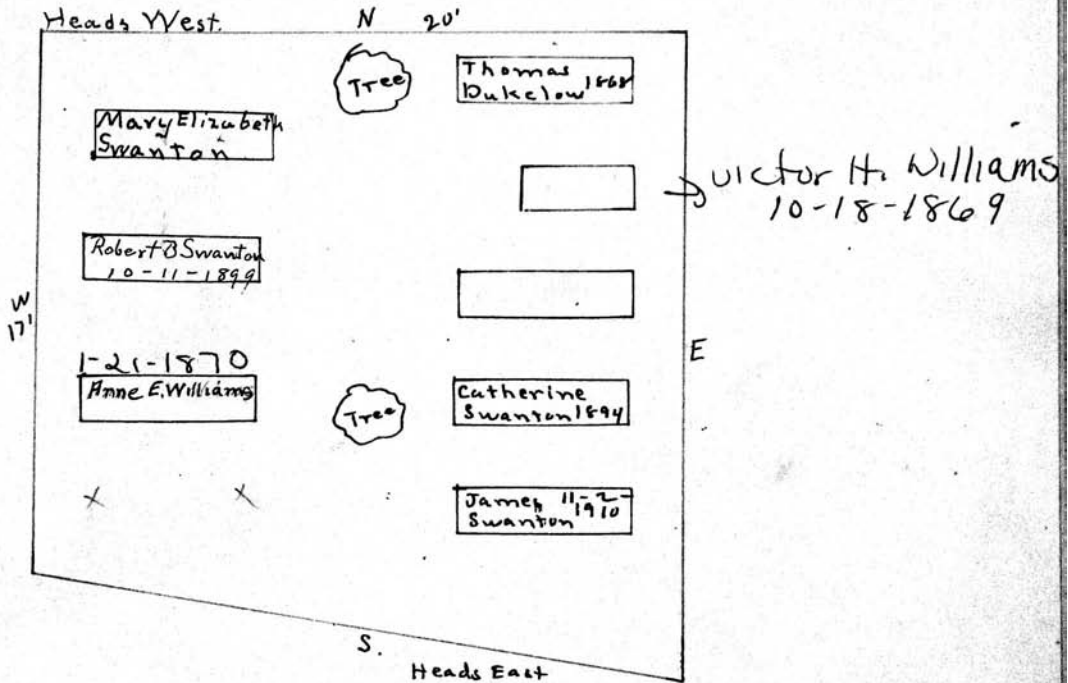 Heads West.
N 20'
Tree
Thomas 1868
Dukelow
Mary Elizabeth
Swanton
Victor H. Williams
10-18-1869
Robert B Swanton
10-11-1899
W
17'
E
1-21-1870
Anne E. Williams
Tree
Catherine
Swanton 1894
X X
James 11-2-
1910
Swanton
S.
Heads East